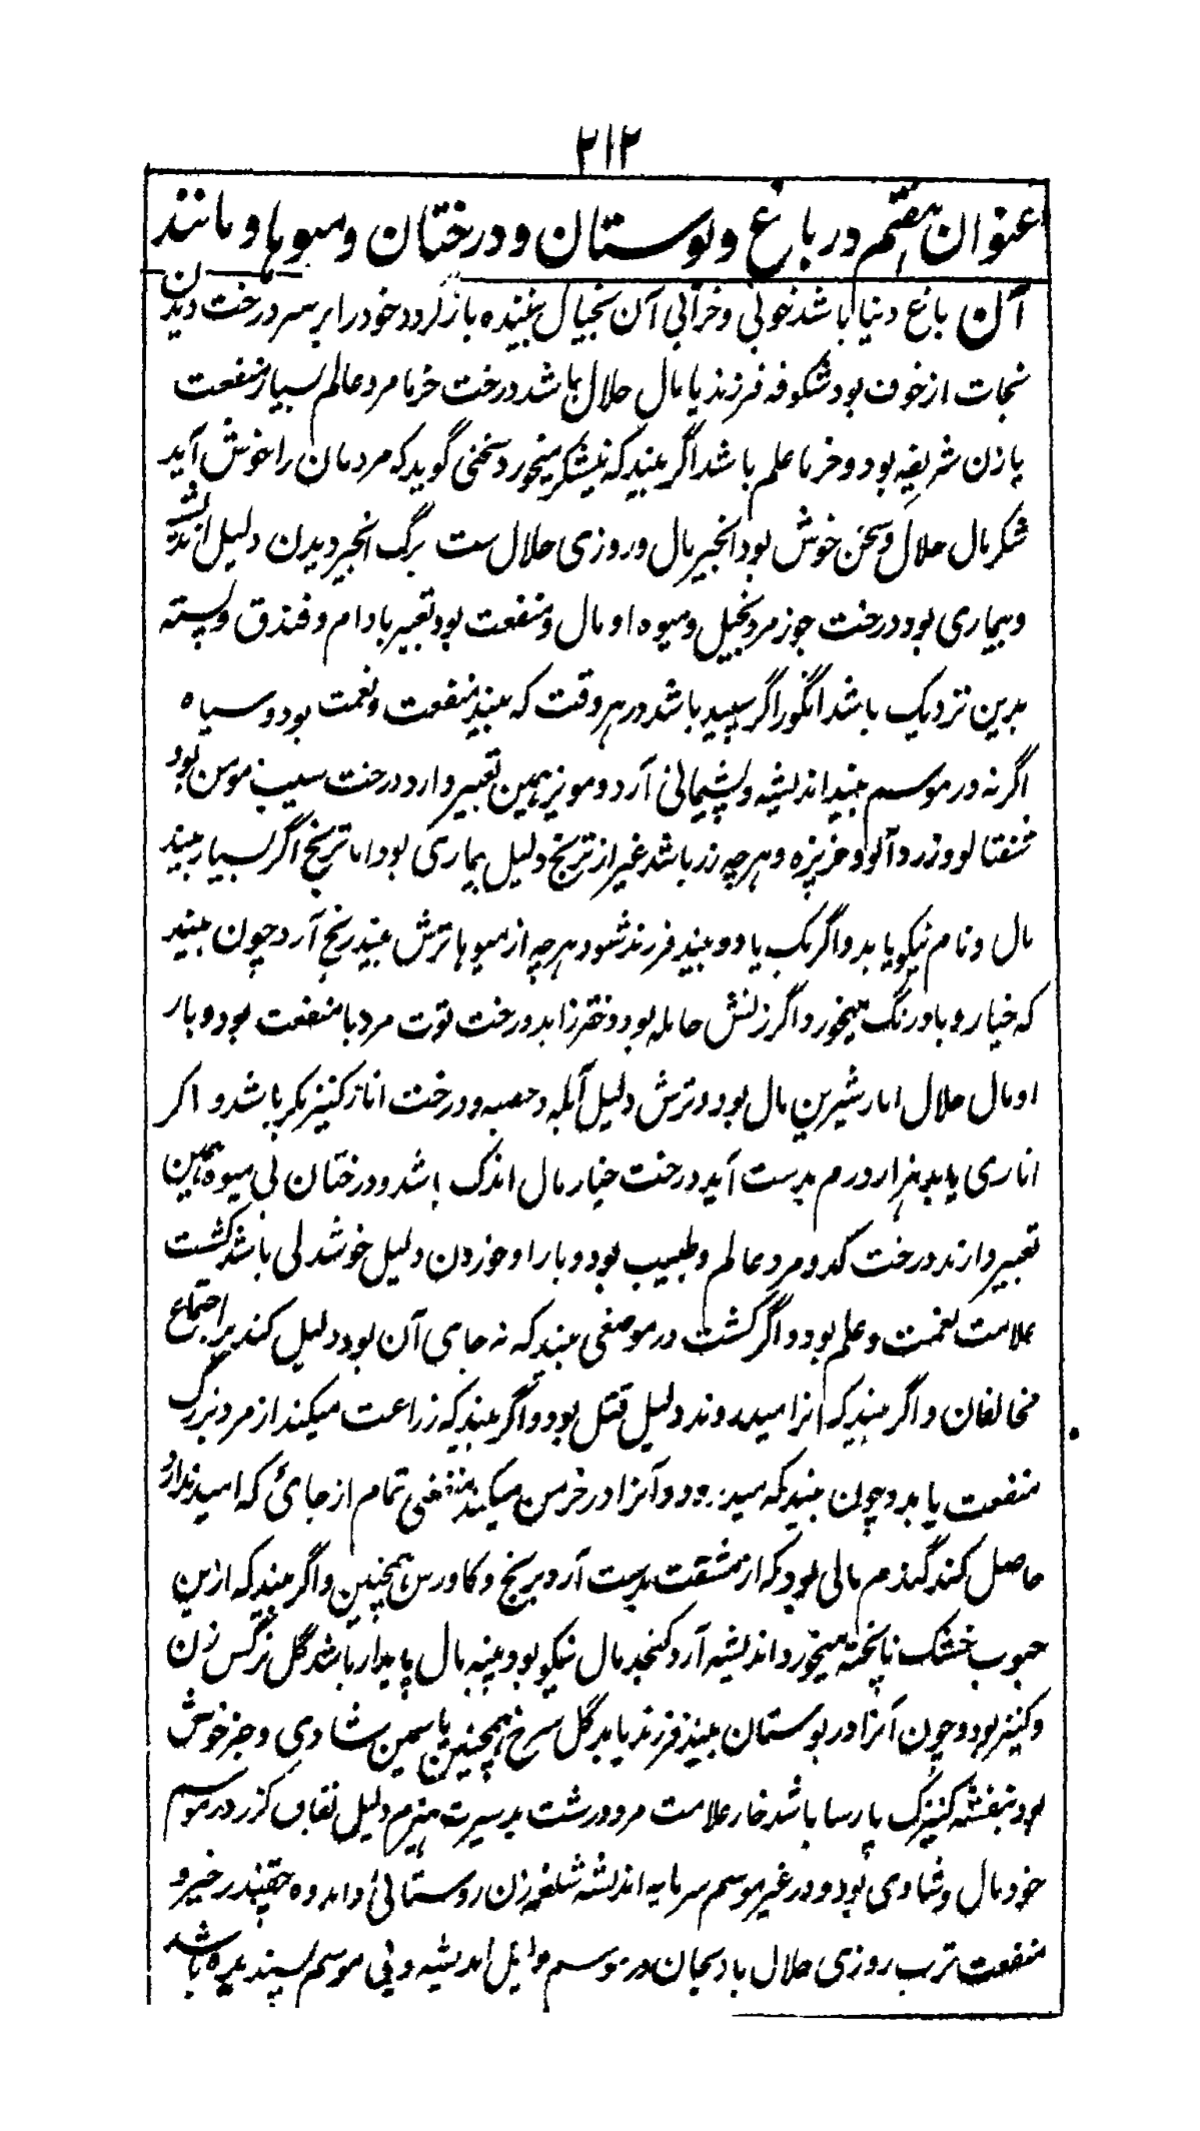 ۲۱۲
عنوان هفتم در باغ و بوستان و درختان و میوها و مانند
آن باغ دنیا باشد خوبی و خرابی آن بخیال بیننده بازگردد خود را بر سر درخت دیدن
نجات از خوف بود شکوفه فرزند یا مال حلال باشد درخت خرما مرد عالم بسیار منفعت
یا زن شریفه بود و خرما علم باشد اگر بیند که نیشکر میخورد سخنی گوید که مردمان را خوش آید
شکر مال حلال و سخن خوش بود انجیر مال و روزی حلال ست برگ انجیر دیدن دلیل اندیشه
و بیماری بود درخت جوز مرد بخیل و میوه او مال و منفعت بود تعبیر بادام و فندق و پسته
بدین نزدیک باشد انگور اگر سپید باشد در هر وقت که بیند منفعت و نعمت بود و سیاه
اگر نه در موسم بیند اندیشه و پشیمانی آرد و مویز همین تعبیر دارد درخت سیب مومن بود
شفتالو و زردآلو و خربزه و هرچه زرد باشد غیر از ترنج دلیل بیماری بود اما ترنج اگر بسیار بیند
مال و نام نیکو یابد و اگر یک یا دو بیند فرزند شود هرچه از میوها ترش بیند رنج آرد چون بیند
که خیار و بادرنگ میخورد اگر زنش حامله بود دختر زاید درخت توت مرد با منفعت بود و بار
او مال حلال انار شیرین مال بود و ترش دلیل آبله و حصبه و درخت انار کنیز بکر باشد و اگر
اناری یابد هزار درم بدست آید درخت خیار مال اندک باشد و درختان بی میوه همین
تعبیر دارند درخت کدو مرد عالم و طبیب بود و بار او خوردن دلیل خوشدلی باشد کشت
علامت نعمت و علم بود و اگر کشت در موضعی بیند که نه جای آن بود دلیل کند بر اجتماع
مخالفان و اگر بیند که آنرا میدروند دلیل قتل بود و اگر بیند که زراعت میکند از مرد بزرگ
منفعت یابد و چون بیند که میدرود و آنرا در خرمن میکند منفعتی تمام از جائ که امید ندارد
حاصل کند گندم مالی بود که از مشقت بدست آرد برنج و کاورس همچنین و اگر بیند که ازین
حبوب خشک ناپخته میخورد اندیشه آرد کنجد مال نیکو بود پنبه مال پایدار باشد گل نرگس زن
و کنیز بود و چون آنرا در بوستان بیند فرزند یابد گل سرخ همچنین یاسمین شادی و خبر خوش
بود بنفشه کنیزک پارسا باشد خار علامت مرد درشت بد سیرت هیزم دلیل نفاق گزر در موسم
خود مال و شادی بود و در غیر موسم سرمایه اندیشه شلغم زن روستائی و اندوه چقندر خیر و
منفعت ترب روزی حلال بادنجان در موسم اندیشه و بی موسم پسندیده باشد